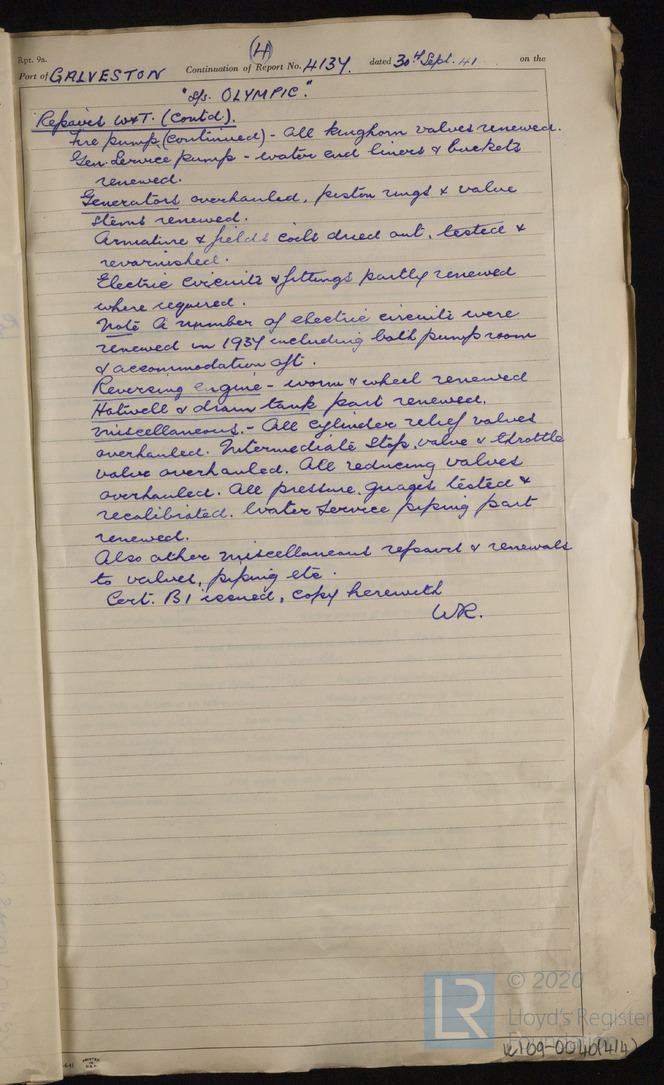 (4)
Rpt. 9a.
Port of GALVESTON Continuation of Report No. 4137. dated 30th Sept. 41 on the
"S/S. OLYMPIC."
Repairs W&T. (Contd).
Fire pump (continued) - All kinghorn valves renewed.
Gen. Service pump - water end liners & buckets
renewed.
Generators overhauled, piston rings & valve
stems renewed.
Armature & fields coils dried out, tested &
revarnished.
Electric circuits & fittings partly renewed
where required.
Note A number of electric circuits were
renewed in 1937 including both pump room
& accommodation aft.
Reversing engine - worm & wheel renewed
Hotwell & drain tank part renewed.
Miscellaneous. - All cylinder relief valves
overhauled. Intermediate stop, valve & throttle
valve overhauled. All reducing valves
overhauled. All pressure guages tested &
recalibrated. Water Service piping part
renewed.
Also other miscellaneous repairs & renewals
to valves, piping etc.
Cert. B1 issued, copy herewith
WR.
LR © 2020
Lloyd's Register
W109-0040(4/4)
PRINTED
IN